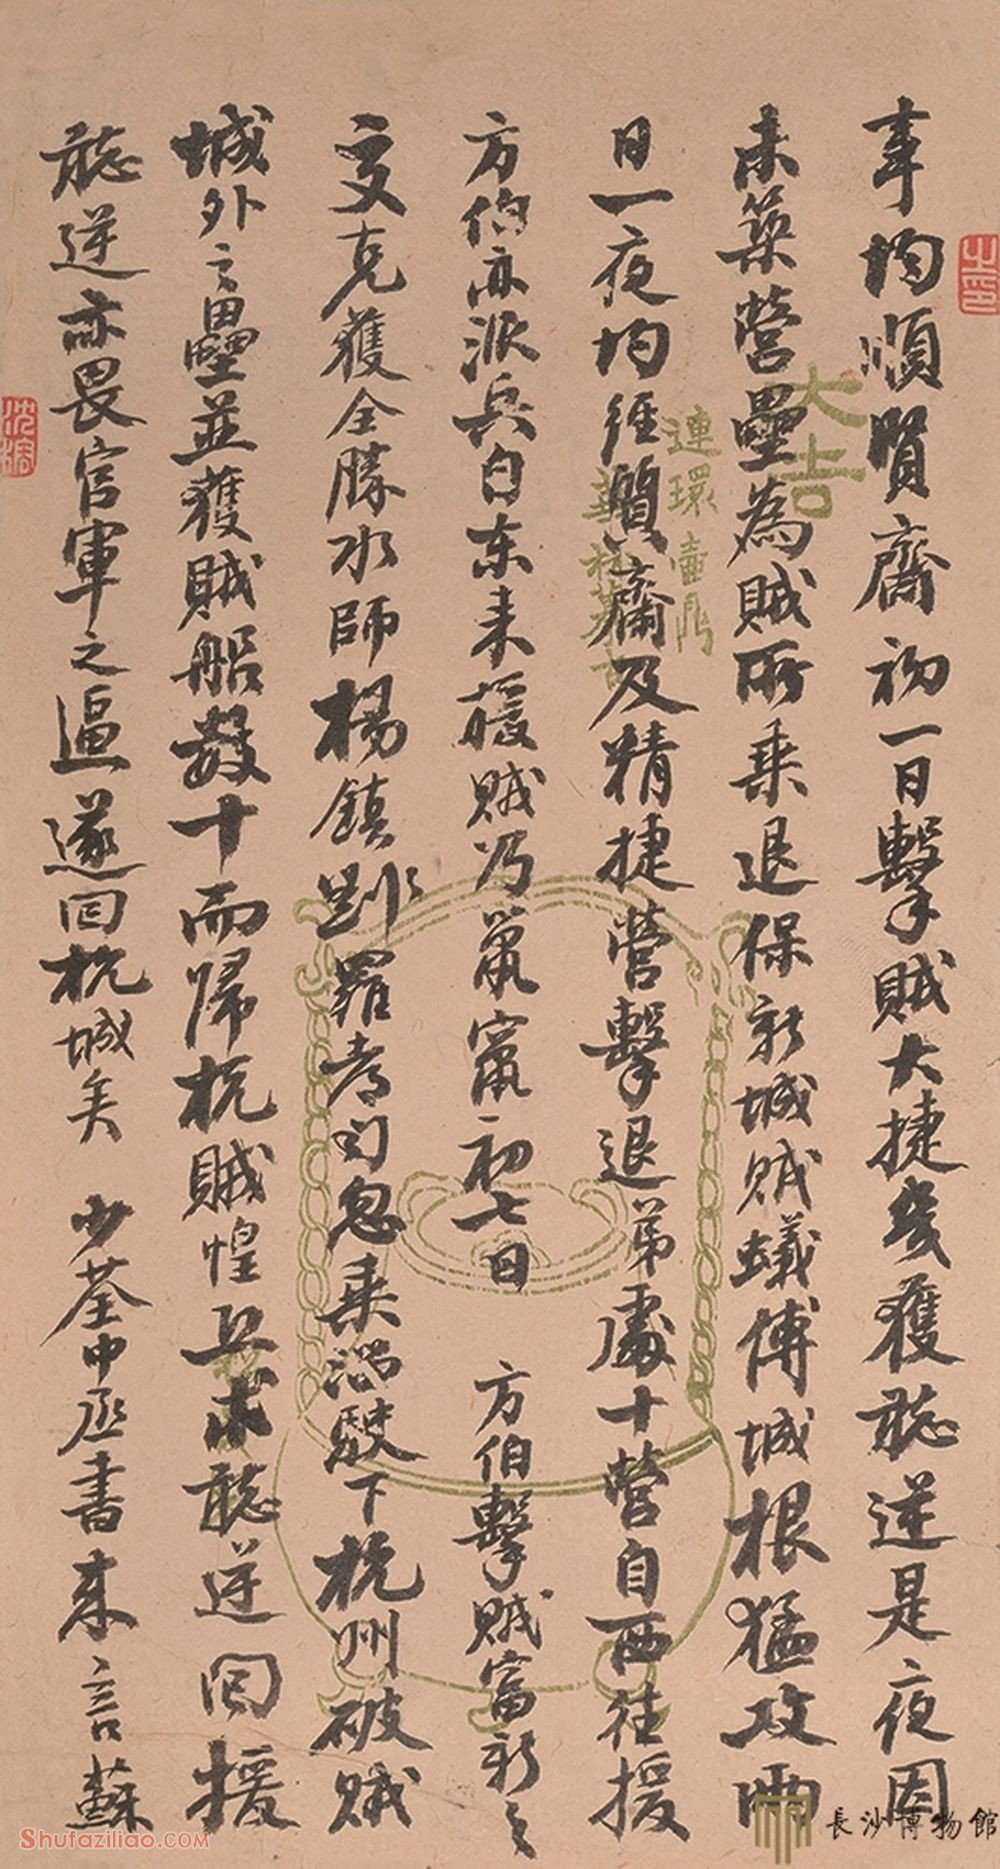 事均順賢齋初一日擊賊大捷幾獲聽逆是夜因
未築營壘為賊所乘退保新城賊蟻博城根猛攻兩
日一夜均經賢齋及精捷營擊退弟處十營自西往援
方伯亦派兵自東来援賊乃鼠竄初七日 方伯擊賊富新之
交克獲全勝水師楊鎮羅孝勻忽乘潮駛下杭州破賊
城外之壘並獲賊船數十而歸杭賊惶亟求聽逆回援
聽逆亦畏官軍之逼遂回杭城矣 少荃中丞書来言蘇
大吉
連環壺
之印
長沙博物館
Shufaziliao.COM